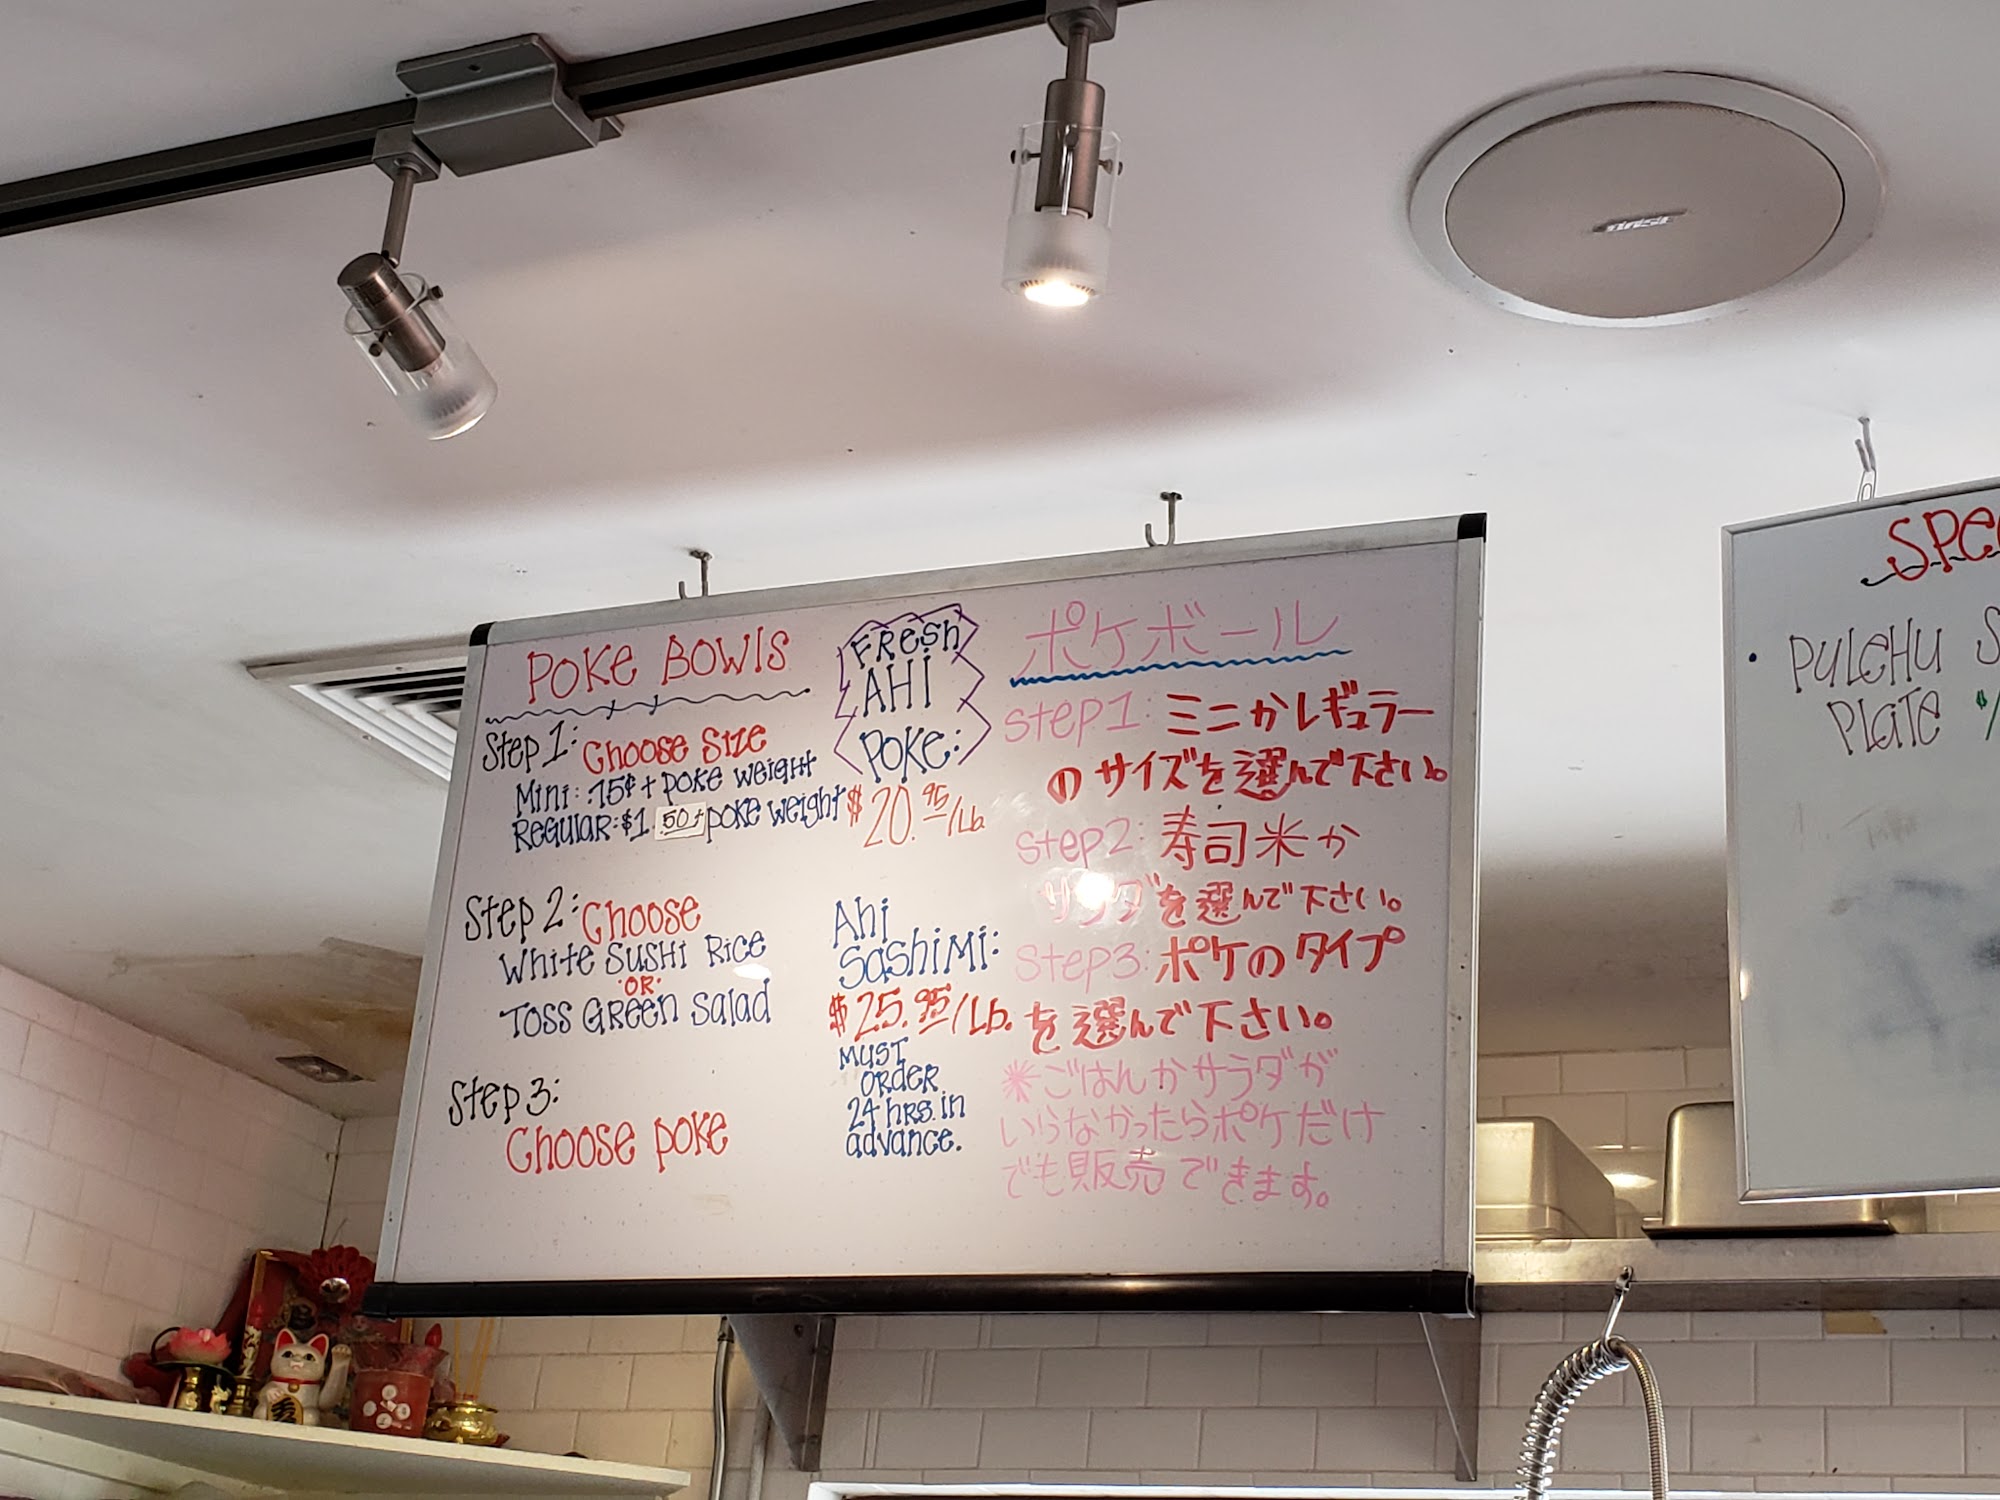 POKE BOWLS
Step 1: Choose Size
Mini: .75¢ + poke weight
Regular: $1.50 + poke weight
Step 2: Choose
White Sushi Rice
OR
Toss Green Salad
Step 3:
Choose poke
FResh
AHI
POKE:
$20.95/Lb
Ahi
Sashimi:
$25.95/Lb.
Must
order
24 hrs. in
advance.
ポケボール
Step1: ミニかレギュラー
のサイズを選んで下さい。
Step2: 寿司米か
サラダを選んで下さい。
Step3: ポケのタイプ
を選んで下さい。
※ごはんかサラダが
いらなかったらポケだけ
でも販売できます。
BOSE
• PULEHU
PLATE